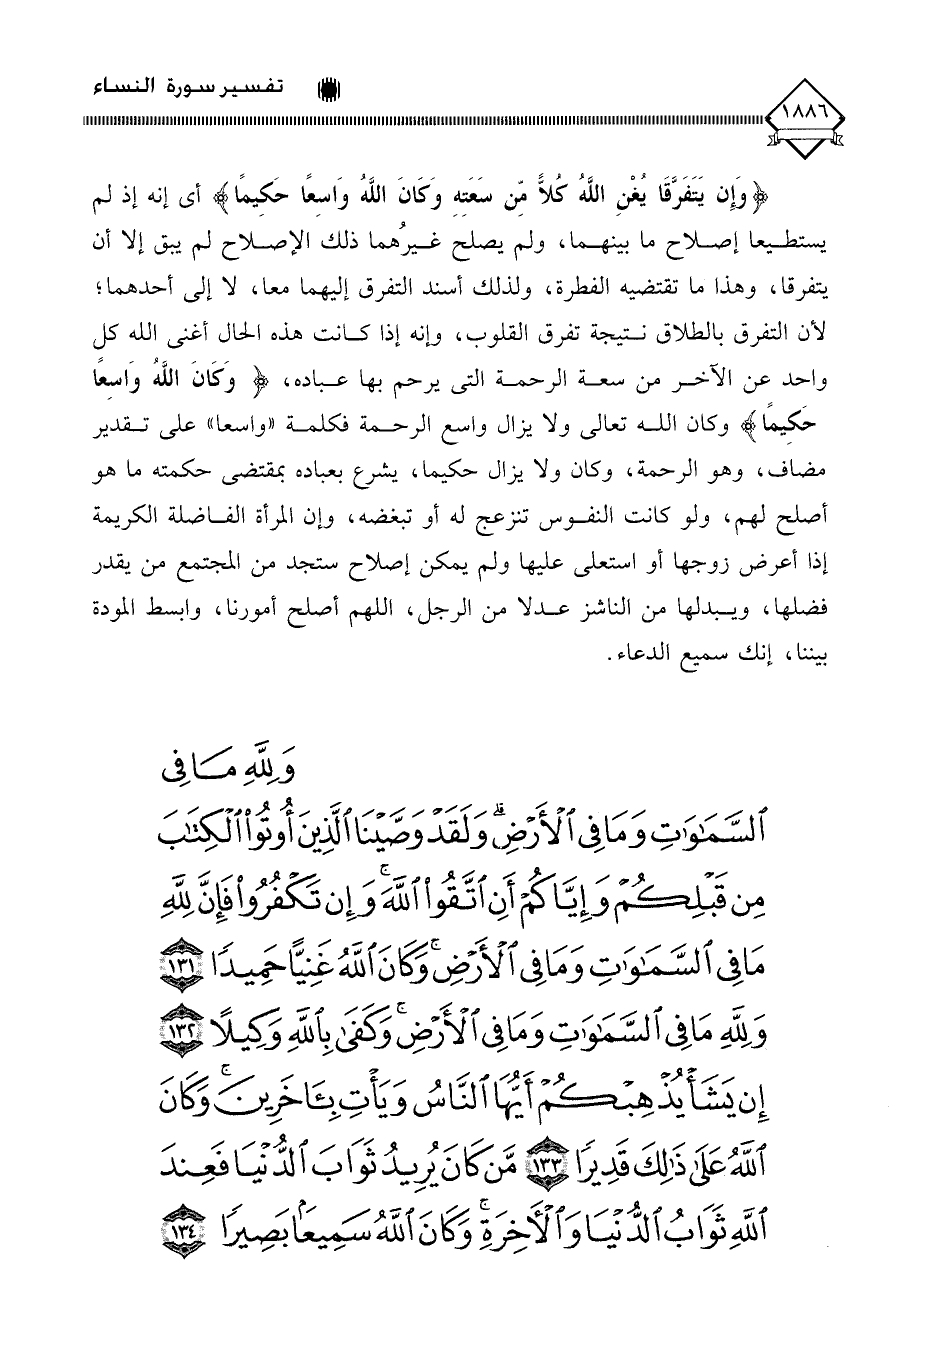 تفسير سورة النساء
١٨٨٦
﴿وَإِن يَتَفَرَّقَا يُغْنِ اللَّهُ كُلاًّ مِّن سَعَتِهِ وَكَانَ اللَّهُ وَاسِعًا حَكِيمًا﴾ أى إنه إذ لم
يستطيعا إصلاح ما بينهما، ولم يصلح غيرُهما ذلك الإصلاح لم يبق إلا أن
يتفرقا، وهذا ما تقتضيه الفطرة، ولذلك أسند التفرق إليهما معا، لا إلى أحدهما؛
لأن التفرق بالطلاق نتيجة تفرق القلوب، وإنه إذا كانت هذه الحال أغنى الله كل
واحد عن الآخر من سعة الرحمة التى يرحم بها عباده، ﴿ وَكَانَ اللَّهُ وَاسِعًا
حَكِيمًا﴾ وكان الله تعالى ولا يزال واسع الرحمة فكلمة «واسعا» على تقدير
مضاف، وهو الرحمة، وكان ولا يزال حكيما، يشرع بعباده بمقتضى حكمته ما هو
أصلح لهم، ولو كانت النفوس تنزعج له أو تبغضه، وإن المرأة الفاضلة الكريمة
إذا أعرض زوجها أو استعلى عليها ولم يمكن إصلاح ستجد من المجتمع من يقدر
فضلها، ويبدلها من الناشز عدلا من الرجل، اللهم أصلح أمورنا، وابسط المودة
بيننا، إنك سميع الدعاء.
وَلِلَّهِ مَا فِى
ٱلسَّمَٰوَٰتِ وَمَا فِى ٱلْأَرْضِۗ وَلَقَدْ وَصَّيْنَا ٱلَّذِينَ أُوتُوا۟ ٱلْكِتَٰبَ
مِن قَبْلِكُمْ وَإِيَّاكُمْ أَنِ ٱتَّقُوا۟ ٱللَّهَۚ وَإِن تَكْفُرُوا۟ فَإِنَّ لِلَّهِ
مَا فِى ٱلسَّمَٰوَٰتِ وَمَا فِى ٱلْأَرْضِۚ وَكَانَ ٱللَّهُ غَنِيًّا حَمِيدًا ١٣١
وَلِلَّهِ مَا فِى ٱلسَّمَٰوَٰتِ وَمَا فِى ٱلْأَرْضِۚ وَكَفَىٰ بِٱللَّهِ وَكِيلًا ١٣٢
إِن يَشَأْ يُذْهِبْكُمْ أَيُّهَا ٱلنَّاسُ وَيَأْتِ بِـَٔاخَرِينَۚ وَكَانَ
ٱللَّهُ عَلَىٰ ذَٰلِكَ قَدِيرًا ١٣٣ مَّن كَانَ يُرِيدُ ثَوَابَ ٱلدُّنْيَا فَعِندَ
ٱللَّهِ ثَوَابُ ٱلدُّنْيَا وَٱلْأَخِرَةِۚ وَكَانَ ٱللَّهُ سَمِيعًۢا بَصِيرًا ١٣٤